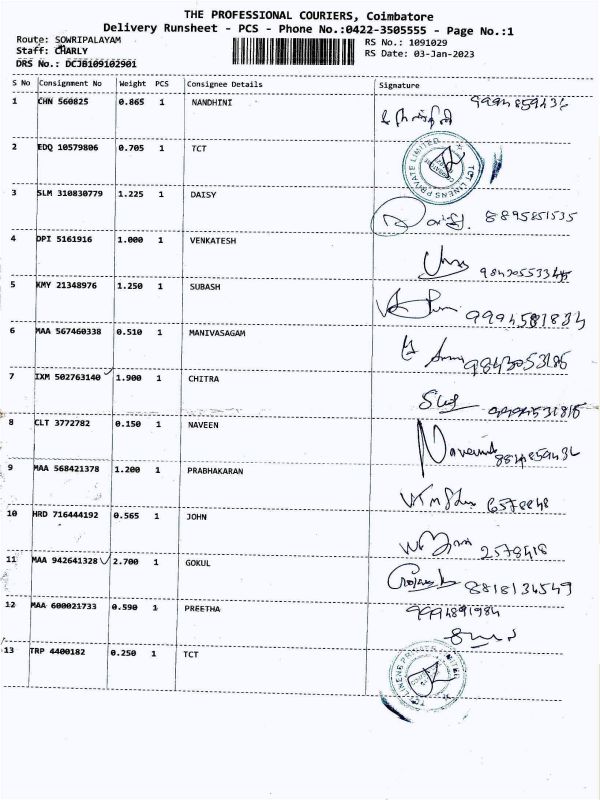 THE PROFESSIONAL COURIERS, Coimbatore
Delivery Runsheet - PCS - Phone No.:0422-3505555 - Page No.:1
Route: SOWRIPALAYAM
RS No.: 1091029
Staff: CHARLY
RS Date: 03-Jan-2023
DRS No.: DCJB109102901
S No Consignment No Weight PCS Consignee Details Signature
1 CHN 560825 0.865 1 NANDHINI
2 EDQ 10579806 0.705 1 TCT TCT LINENS PRIVATE LIMITED
3 SLM 310830779 1.225 1 DAISY 8895851535
4 DPI 5161916 1.000 1 VENKATESH
5 KMY 21348976 1.250 1 SUBASH 9994581834
6 MAA 567460338 0.510 1 MANIVASAGAM
7 IXM 502763140 1.900 1 CHITRA
8 CLT 3772782 0.150 1 NAVEEN
9 MAA 568421378 1.200 1 PRABHAKARAN
10 HRD 716444192 0.565 1 JOHN 2578418
11 MAA 942641328 2.700 1 GOKUL 8818134549
12 MAA 600021733 0.590 1 PREETHA 9994891984
13 TRP 4400182 0.250 1 TCT TCT LINENS PRIVATE LIMITED